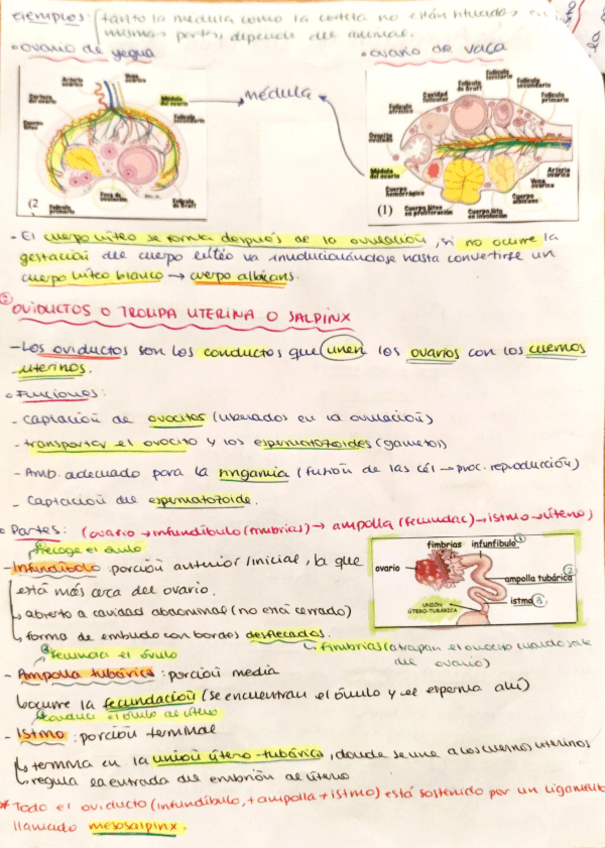 ejemplos: tanto la médula como la corteza no están situadas en
mismas partes, depende del animal.
• ovario de yegua
• ovario de vaca
médula
Médula del ovario
(2
Folículo primario
Fosa de ovulación
Folículo de Graaf
Folículo terciario
Folículo secundario
Folículo primario
Cavidad folicular
Médula del ovario
Cuerpo hemorrágico
(1)
Cuerpo lúteo en proliferación
Cuerpo lúteo en involución
Arteria ovárica
Vena ovárica
- El cuerpo lúteo se forma después de la ovulación, si no ocurre la
gestación del cuerpo lúteo va involucionándose hasta convertirse un
cuerpo lúteo blanco → cuerpo albicans.
OVIDUCTOS O TROMPA UTERINA O SALPINX
- Los oviductos son los conductos que unen los ovarios con los cuernos
uterinos.
• Funciones:
- Captación de ovocitos (liberados en la ovulación)
- transportar el ovocito y los espermatozoides (gametos)
- Amb. adecuado para la singamia (fusión de las cél → proc. reproducción)
- Captación del espermatozoide.
• Partes: (ovario → infundíbulo (fimbrias) → ampolla (fecundac) → istmo → útero)
Recoge el óvulo
- Infundíbulo: porción anterior/inicial, la que
está más cerca del ovario.
↳ abierto a cavidad abdominal (no está cerrado)
↳ forma de embudo con bordes desflecados.
↳ fimbrias (atrapan el ovocito cuando sale
del ovario)
fimbrias
infunfibulo ①
ovario
ampolla tubárica ②
istmo ③
UNIÓN
ÚTERO-TUBÁRICA
fecundar el óvulo
- Ampolla tubárica: porción media
↳ ocurre la fecundación (se encuentran el óvulo y el esperma ahí)
conduce el óvulo al útero
- Istmo: porción terminal
↳ termina en la unión útero-tubárica, donde se une a los cuernos uterinos
↳ regula la entrada del embrión al útero
* Todo el oviducto (infundíbulo, + ampolla + istmo) está sostenido por un ligamento
llamado mesosalpinx.